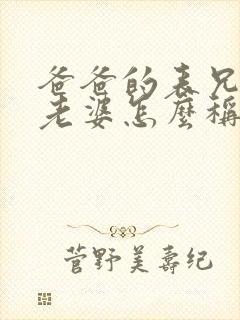 爸爸的表兄
老婆怎麼稱
菅野美壽纪